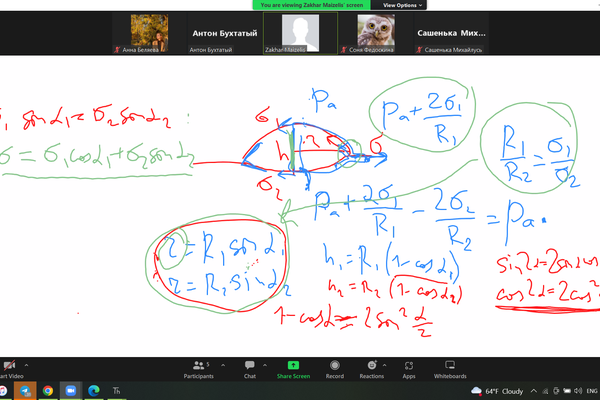 You are viewing Zakhar Maizelis' screen
View Options
Анна Беляева
Антон Бухтатый
Антон Бухтатый
Zakhar Maizelis
Соня Федоскина
Сашенька Мих...
Сашенька Михайлусь
σ₁ sinα₁=σ₂sinα₂ :
σ = σ₁cosα₁+σ₂cosα₂
σ₁
Pₐ
h
r
σ
σ₂
Pₐ+2σ₁/R₁
R₁/R₂=σ₁/σ₂
Pₐ+2σ₁/R₁-2σ₂/R₂=Pₐ.
r=R₁sinα₁
r=R₂sinα₂
h₁=R₁(1-cosα₁)
h₂=R₂(1-cosα₂)
1-cosα=2sin²α/2
sin2α=2sinαcos
cos2α=2cos²
art Video
Participants
5
Chat
Share Screen
Record
Reactions
Apps
Whiteboards
64°F Cloudy
ENG